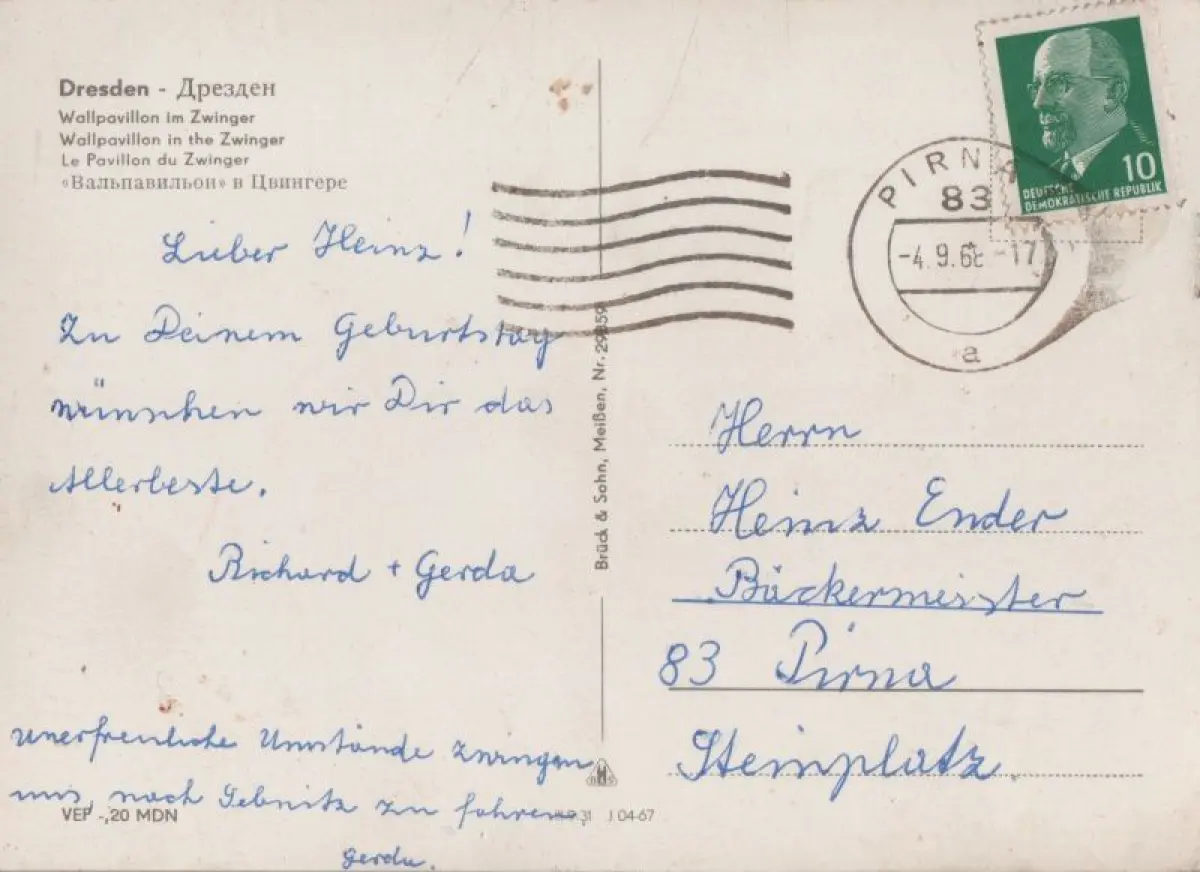 Dresden - Дрезден
Wallpavillon im Zwinger
Wallpavillon in the Zwinger
Le Pavillon du Zwinger
«Вальпавильон» в Цвингере
Lieber Heinz!
Zu Deinem Geburtstag
wünschen wir Dir das
Allerbeste.
Richard + Gerda
unerfreuliche Umstände zwingen
uns, nach Sebnitz zu fahren.
Gerda.
VEP -,20 MDN
J 04-67
Brück & Sohn, Meißen, Nr. 29859
10
DEUTSCHE
DEMOKRATISCHE REPUBLIK
PIRNA
83
-4.9.68 -17
a
Herrn
Heinz Ender
Bäckermeister
83 Pirna
Steinplatz.